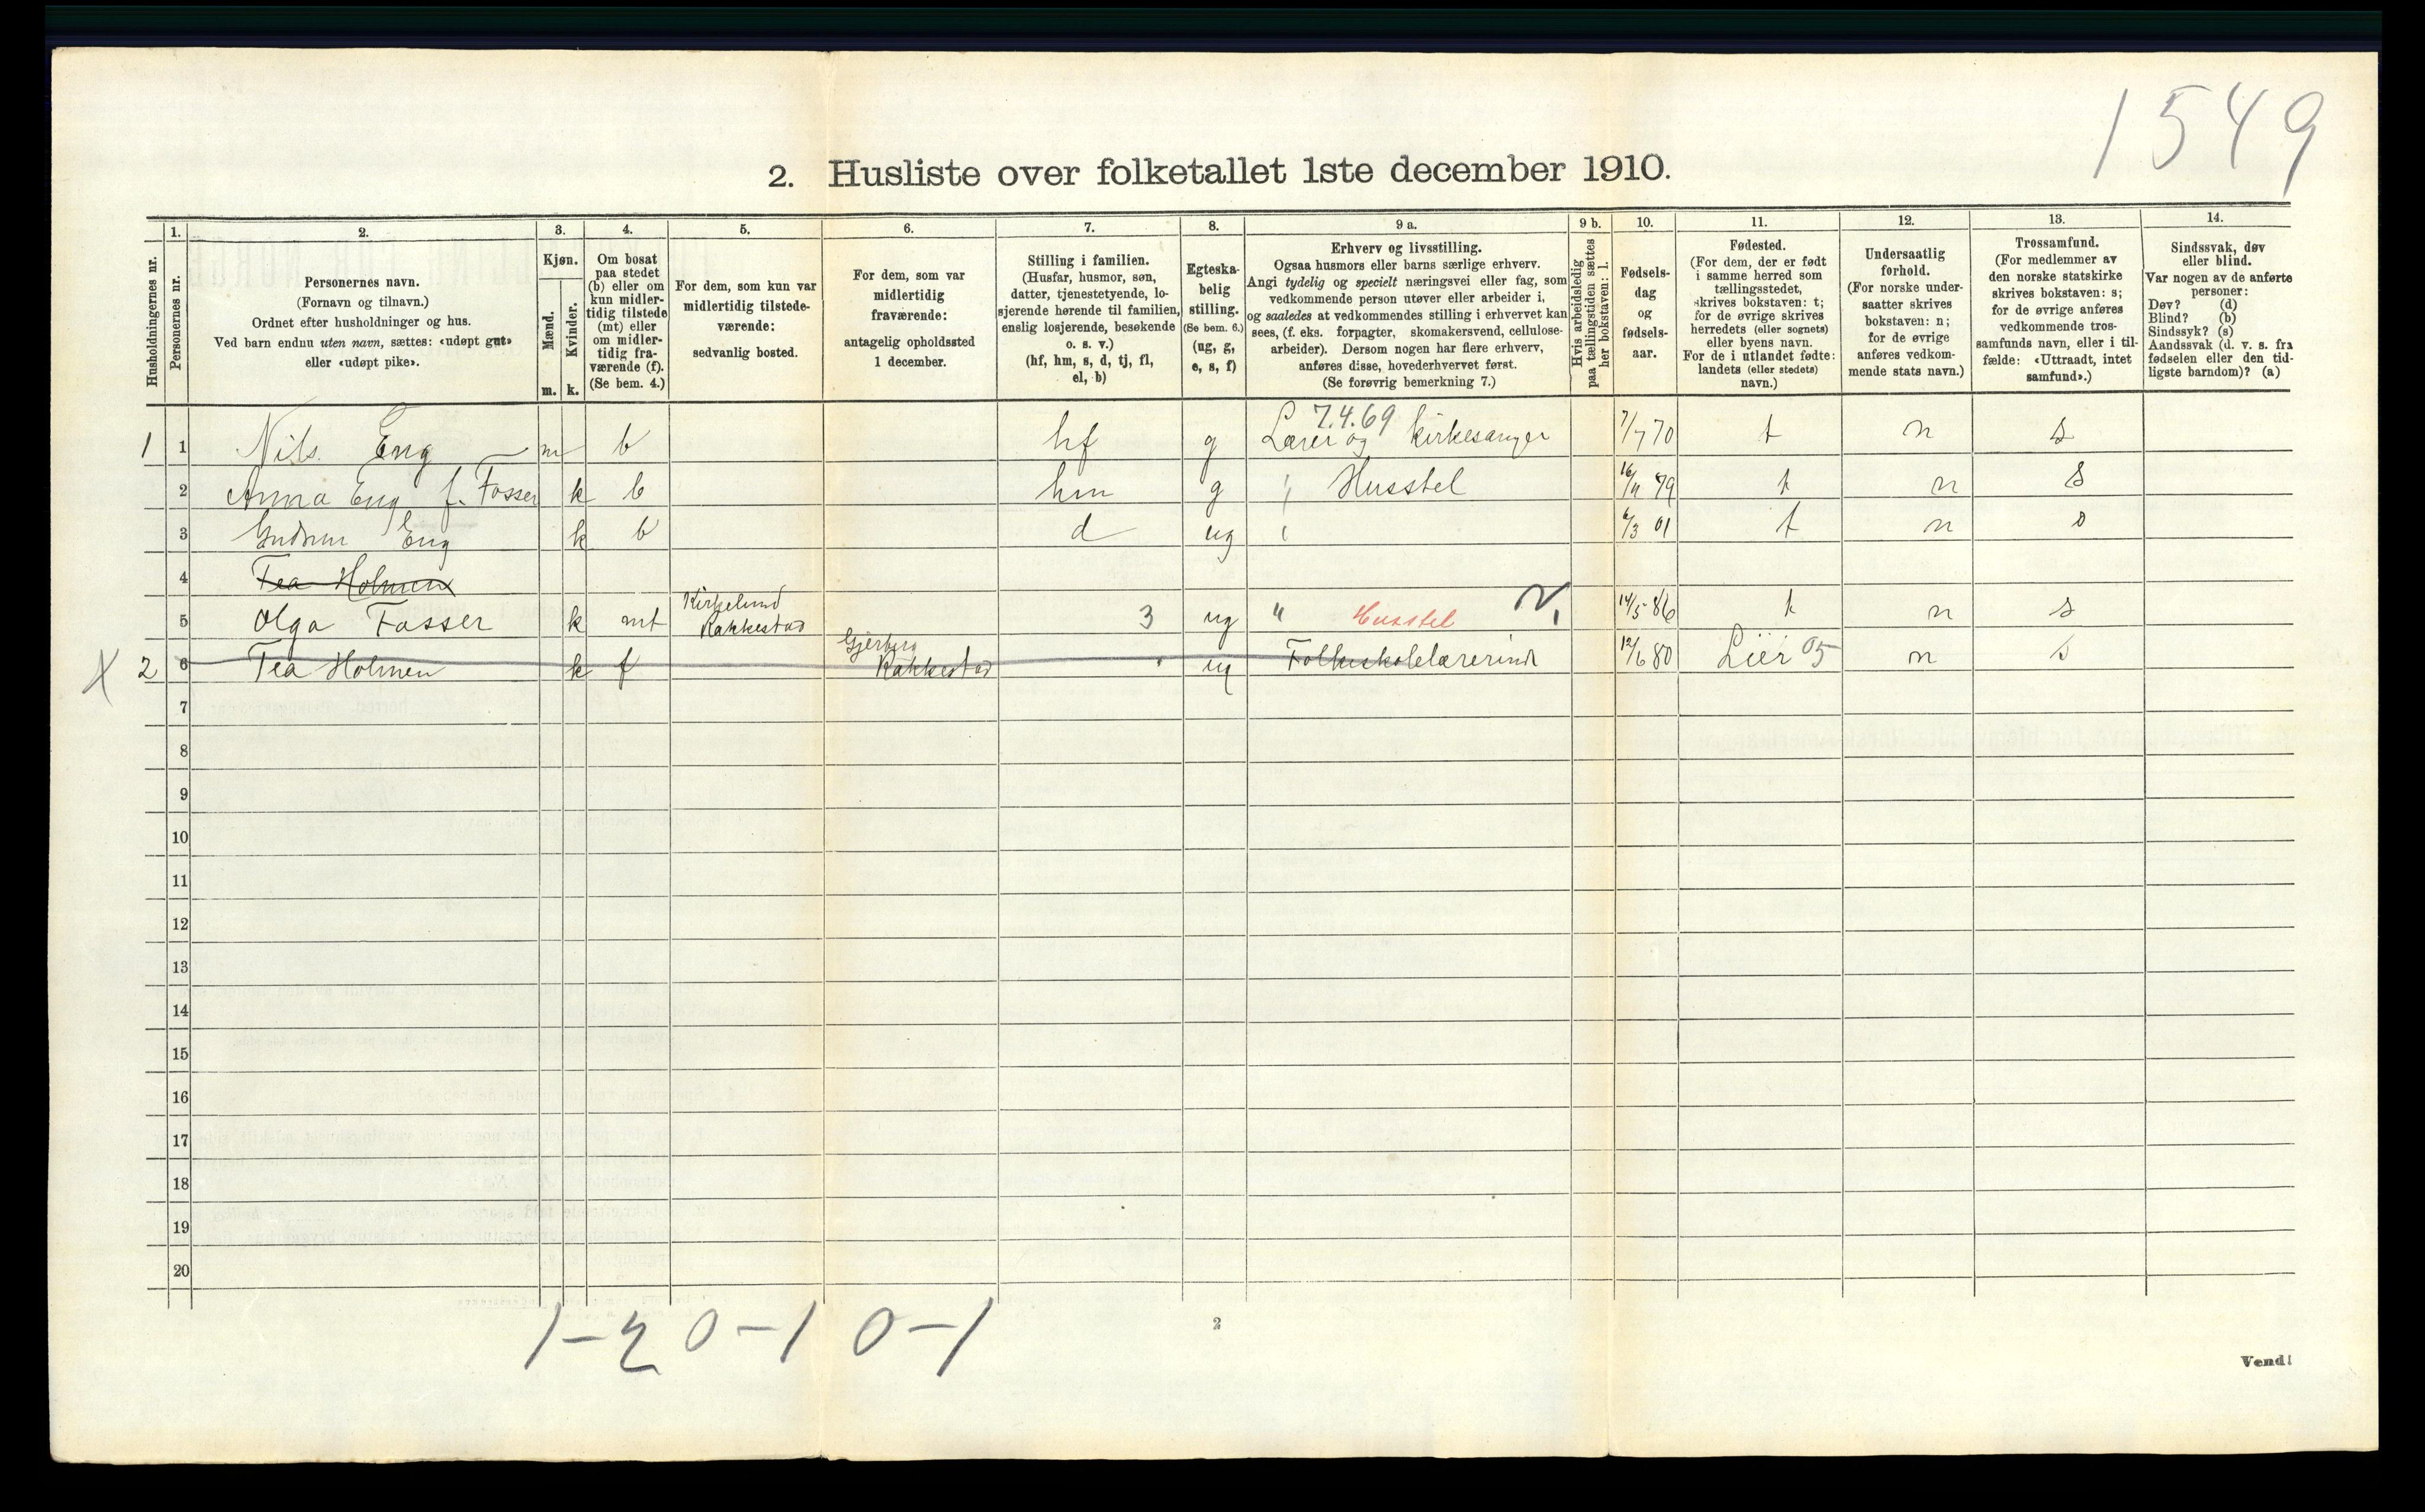 1549
2. Husliste over folketallet 1ste december 1910.
Husholdningernes nr.
1.
Personernes nr.
2.
Personernes navn.
(Fornavn og tilnavn.)
Ordnet efter husholdninger og hus.
Ved barn endnu uten navn, sættes: «udøpt gut»
eller «udøpt pike».
3.
Kjøn.
Mænd.
Kvinder.
m. k.
4.
Om bosat
paa stedet
(b) eller om
kun midler-
tidig tilstede
(mt) eller
om midler-
tidig fra-
værende (f).
(Se bem. 4.)
5.
For dem, som kun var
midlertidig tilstede-
værende:
sedvanlig bosted.
6.
For dem, som var
midlertidig
fraværende:
antagelig opholdssted
1 december.
7.
Stilling i familien.
(Husfar, husmor, søn,
datter, tjenestetyende, lo-
sjerende hørende til familien,
enslig losjerende, besøkende
o. s. v.)
(hf, hm, s, d, tj, fl,
el, b)
8.
Egteska-
belig
stilling.
(Se bem. 6.)
(ug, g,
e, s, f)
9 a.
Erhverv og livsstilling.
Ogsaa husmors eller barns særlige erhverv.
Angi tydelig og specielt næringsvei eller fag, som
vedkommende person utøver eller arbeider i,
og saaledes at vedkommendes stilling i erhvervet kan
sees, (f. eks. forpagter, skomakersvend, cellulose-
arbeider). Dersom nogen har flere erhverv,
anføres disse, hovederhvervet først.
(Se forøvrig bemerkning 7.)
9 b.
Hvis arbeidsledig
paa tællingstiden sættes
her bokstaven: l.
10.
Fødsels-
dag
og
fødsels-
aar.
11.
Fødested.
(For dem, der er født
i samme herred som
tællingsstedet,
skrives bokstaven: t;
for de øvrige skrives
herredets (eller sognets)
eller byens navn.
For de i utlandet fødte:
landets (eller stedets)
navn.)
12.
Undersaatlig
forhold.
(For norske under-
saatter skrives
bokstaven: n;
for de øvrige
anføres vedkom-
mende stats navn.)
13.
Trossamfund.
(For medlemmer av
den norske statskirke
skrives bokstaven: s;
for de øvrige anføres
vedkommende tros-
samfunds navn, eller i til-
fælde: «Uttraadt, intet
samfund».)
14.
Sindssvak, døv
eller blind.
Var nogen av de anførte
personer:
Døv? (d)
Blind? (b)
Sindssyk? (s)
Aandssvak (d. v. s. fra
fødselen eller den tid-
ligste barndom)? (a)
7.4.69
1 1 Nils Eng m b hf g Lærer og kirkesanger 7/7 70 t n s
2 Anna Eng f. Fosser k b hm g " Husstel 16/11 79 t n s
3 Gudrun Eng k b d ug " 6/3 01 t n s
4 Tea Holmen
5 Olga Fosser k mt Kirkelund Rakkestad 3 ug " Husstel 14/5 86 t n s
X 2 6 Tea Holmen k f Gjerberg Rakkestad ug Folkeskolelærerinde 12/6 80 Lier 05 n s
7
8
9
10
11
12
13
14
15
16
17
18
19
20
1-2 0-1 0-1
2
Vend!